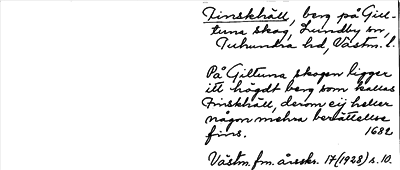 Finskhäll, berg på Gill-
tuna skog, Lundby sn,
Tuhundra hd, Västm. l.
På Giltuna skogen ligger
itt högdt berg som kallas
Finskhäll, derom eij heller
någon mehra berättellse
fins. 1682
Västm. fm. årsskr. 17 (1928) s. 10.